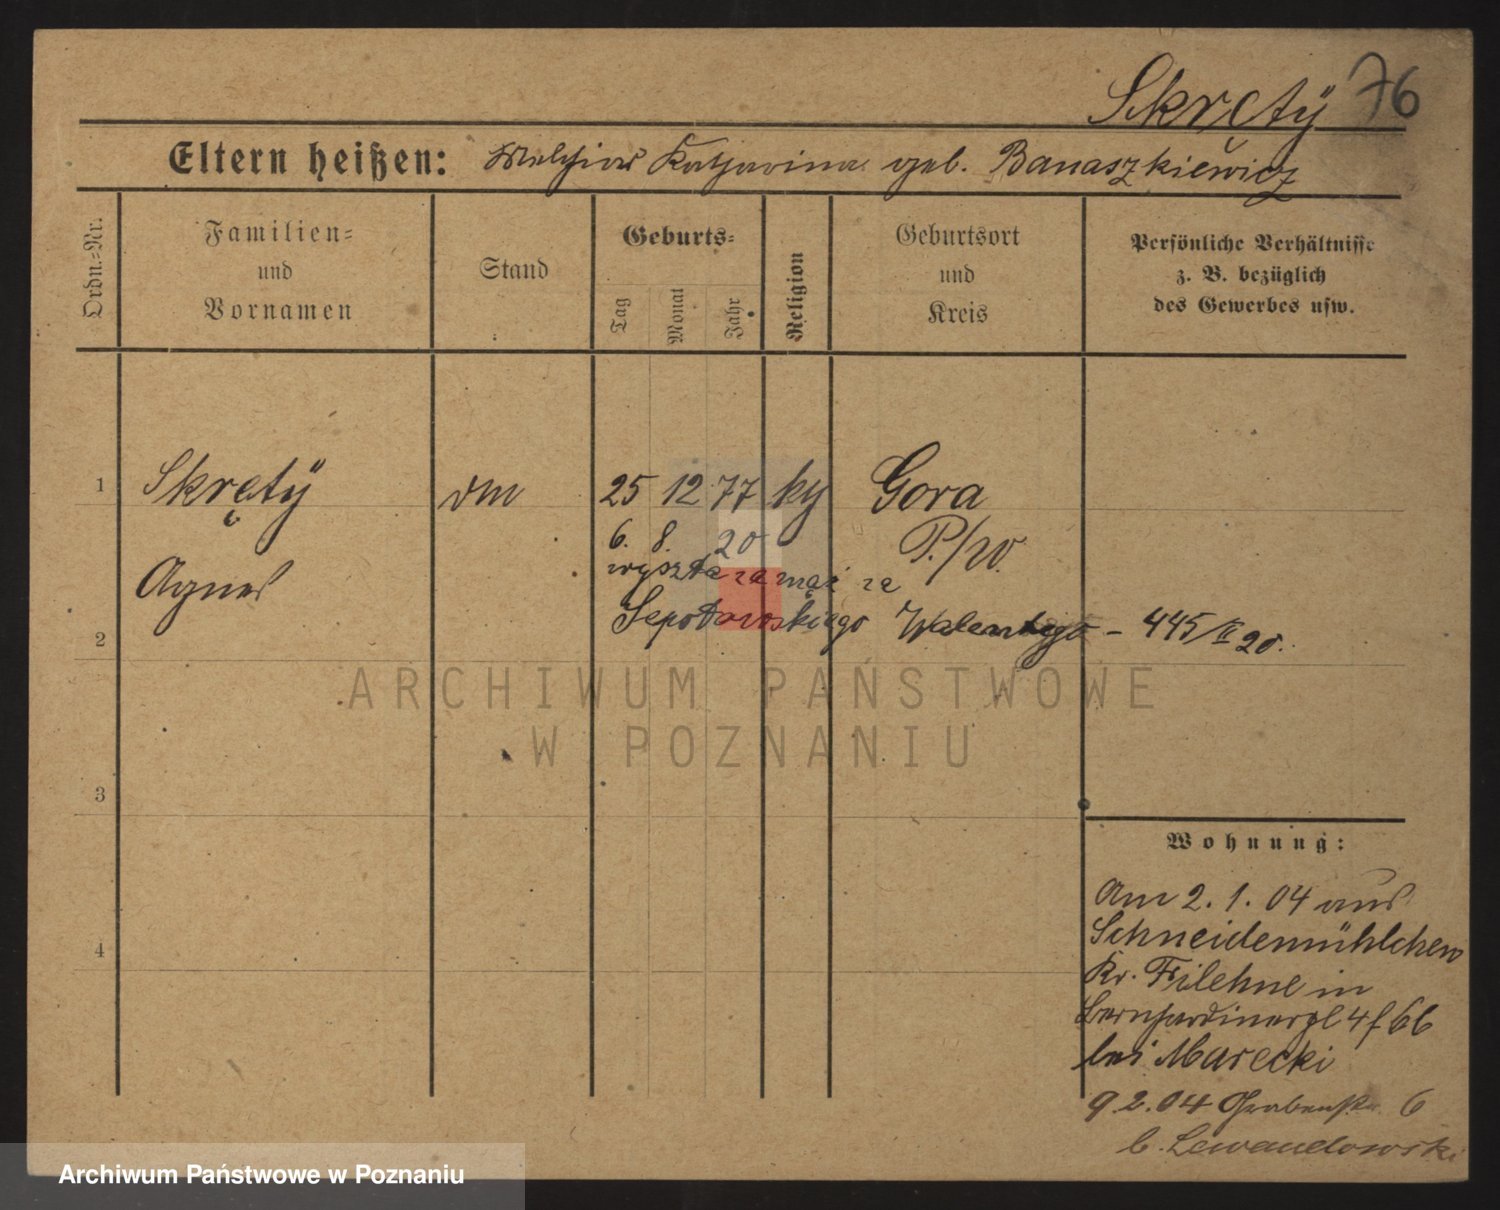 Skręty 76
Eltern heißen: Melchior Katharina geb. Banaszkiewicz
Ordn.=Nr.
Familien=
und
Vornamen
Stand
Geburts=
Tag
Monat
Jahr
Religion
Geburtsort
und
Kreis
Persönliche Verhältnisse
z. B. bezüglich
des Gewerbes usw.
1 Skręty 25 12 77 Gora
P./W.
6. 8. 20
wyszła za mąż za
Agnes
Walentego - 445/II 20.
2
3
4
Wohnung:
Am 2. 1. 04 aus
Schneidemühlchen
Kr. Filehne in
Bernhardinerpl 4 f 6b
bei Marecki
9.2.04 Grabenstr. 6
b. Lewandowski
ARCHIWUM PAŃSTWOWE
W POZNANIU
Archiwum Państwowe w Poznaniu